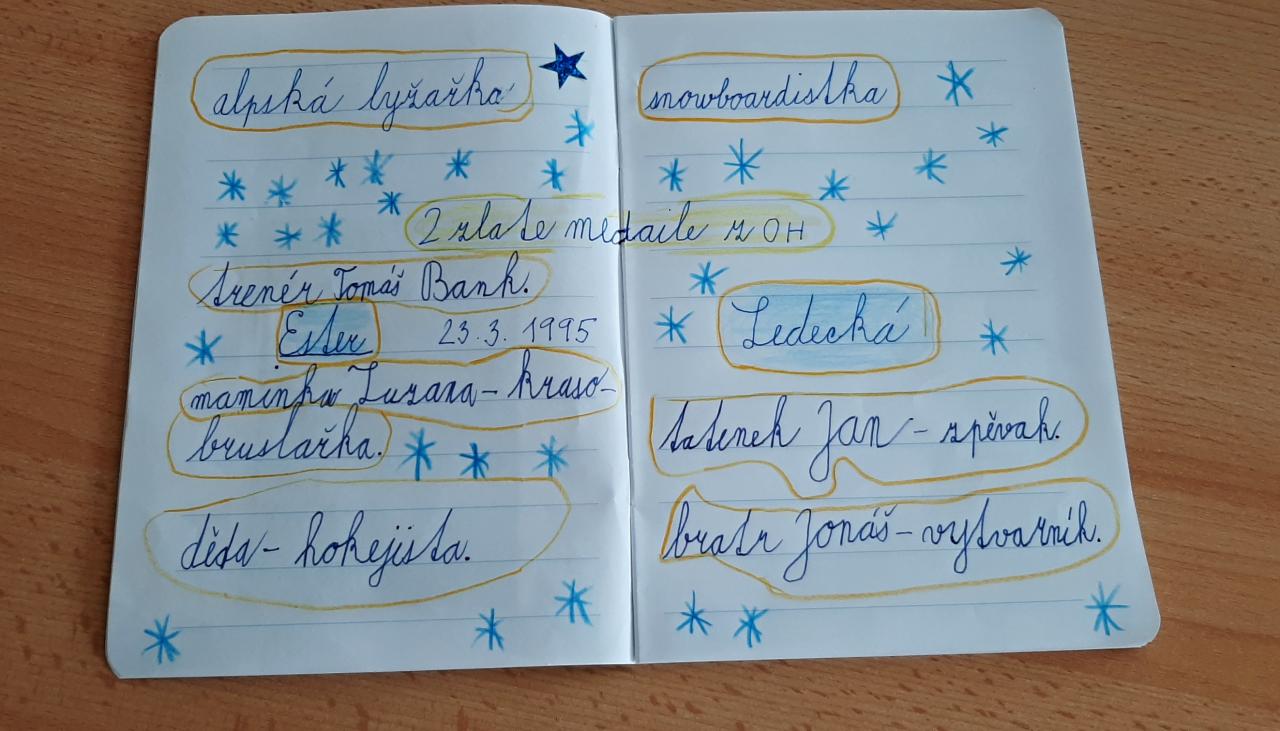 alpská lyžařka
snowboardistka
2 zlate medaile z OH
trenér Tomáš Bank.
Ester 23.3. 1995
Ledecká
maminka Zuzana - kraso-
bruslařka.
tatínek Jan - zpěvak.
děda - hokejista.
bratr Jonáš - vytvarník.